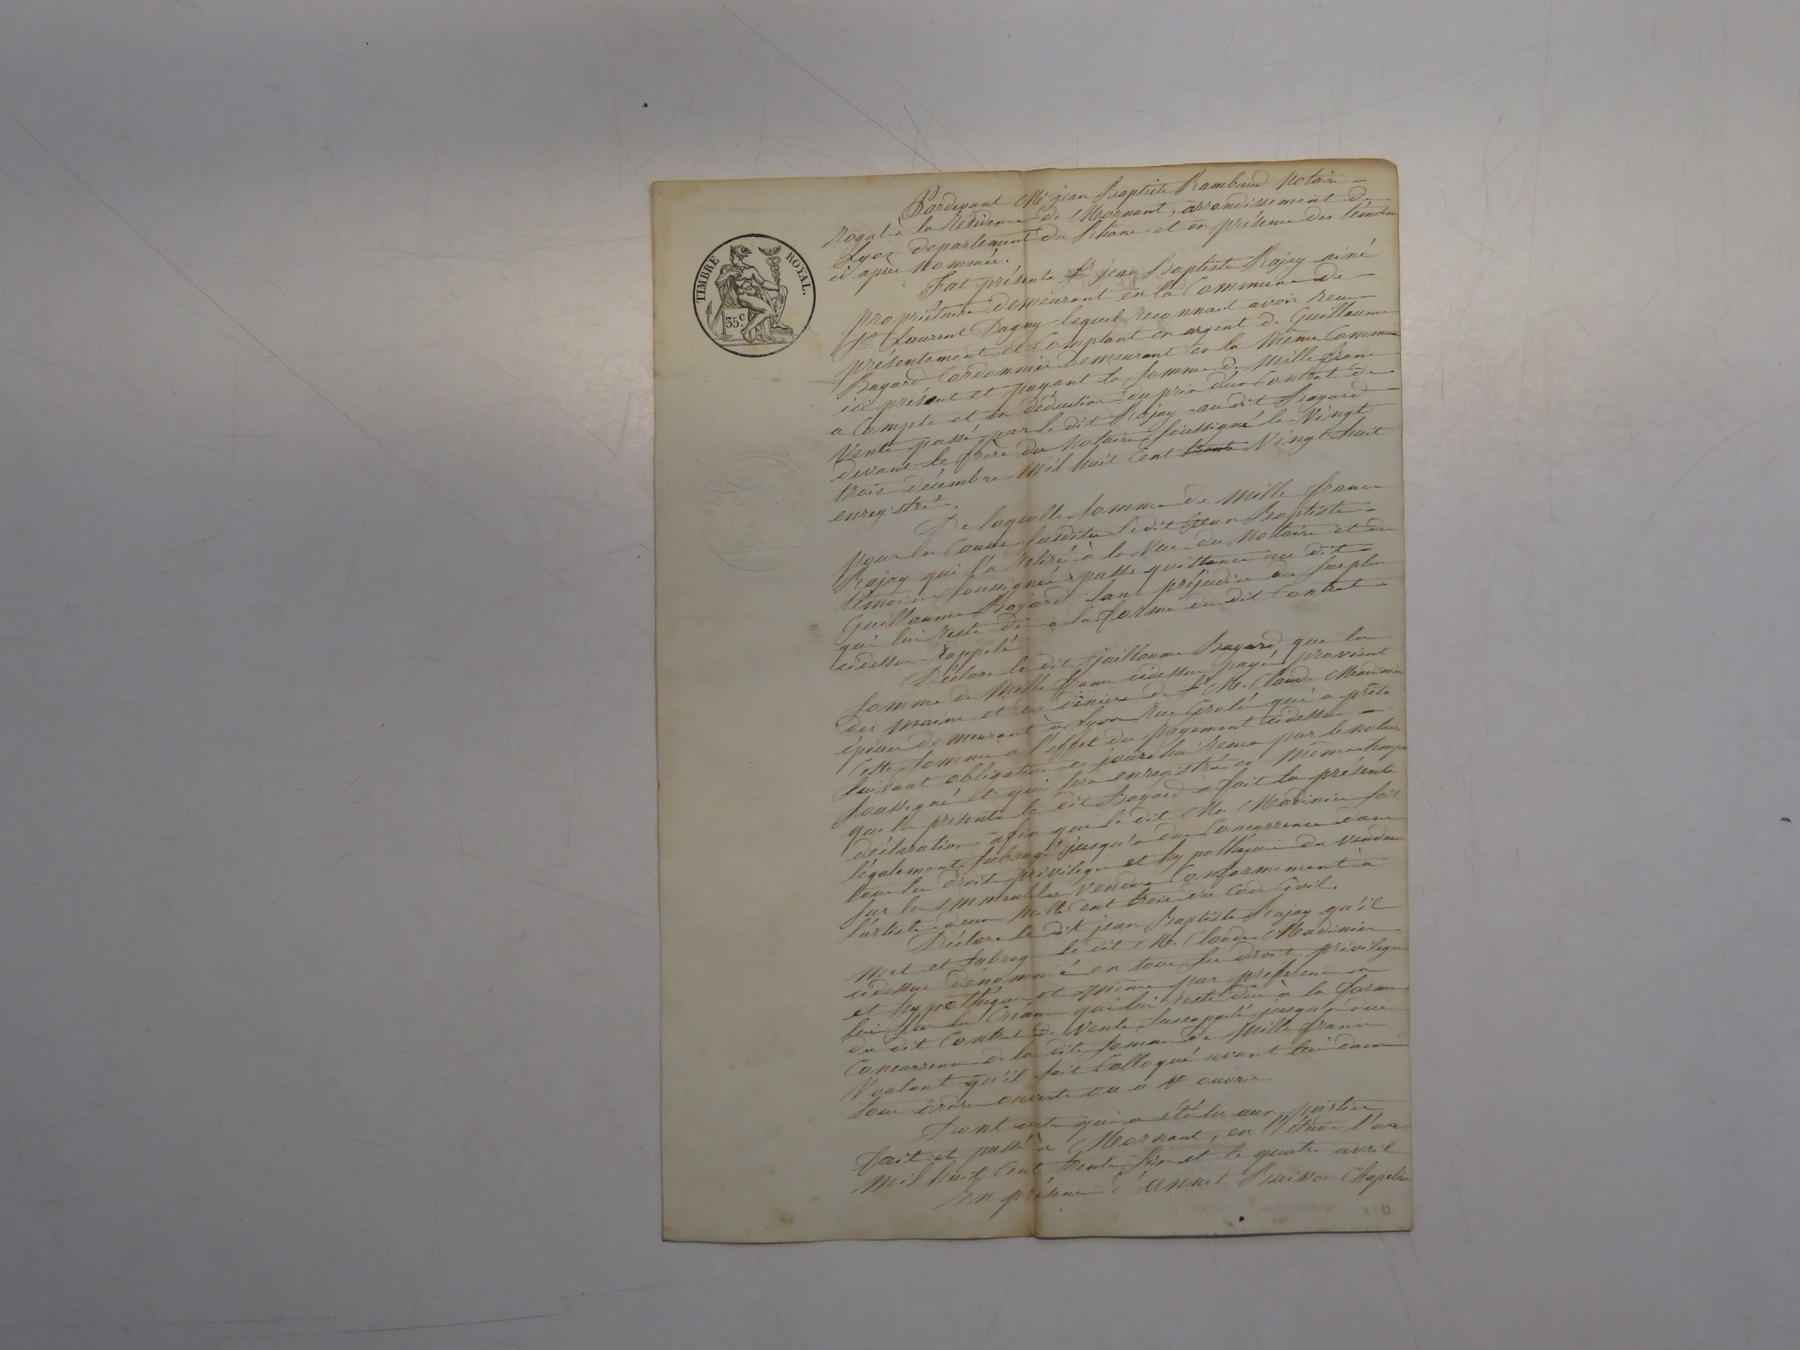 TIMBRE ROYAL.
35 c
Pardevant Me jean Baptiste Rambaud Notaire
Royal à la Résidence de Mornant, arrondissement de
Lyon departement du Rhône et en présence des témoins
ci après Nommés.
Fut présent Sr jean Baptiste Rajay ainé
propriétaire demeurant en la Commune de
St Laurent Dagny lequel reconnait avoir reçu
présentement et Comptant en argent de Guillaume
Bayard Cordonnier demeurant en la même Commune
ici présent et payant la somme de Mille francs
a Compte et en déduction du prix d'un Contrat de
Vente passé par le dit Rajay au dit Bayard
devant le frère du Notaire soussigné le Vingt
trois décembre mil huit Cent trente Vingt huit
enregistré.
De laquelle somme de Mille francs
Pour les Causes susdites le dit jean Baptiste
Rajay qui l'a retiré à la Vue du Notaire et des
témoins soussignés passe quittance au dit
Guillaume Bayard sans préjudice du surplus
qui lui reste dû a la forme du dit Contrat
cidessus Rappelé
Déclare le dit Guillaume Bayard que la
somme de Mille francs cidessus payé provient
des mains et des deniers de Sr M. Claude Madinier
épicier demeurant à Lyon Rue Grolée qui a prêté
Cette somme à l'effet du payement cidessus
suivant obligation ce jourd'hui reçue par le notaire
soussigné et qui sera enregistrée en même temps
que les présentes le dit Bayard a fait la présente
déclaration afin que le dit Me Madinier soit
légalement subrogé jusqu'a due Concurrence dans
tous les droits privilège et hypothèques du vendeur
sur les immeubles Vendus Conformément à
l'article deux Mille cent trois du Code Civil.
Déclare le dit jean Baptiste Rajay qu'il
met et subroge le dit M. Claude Madinier
cidessus dénommé en tous ses droits privilège
et hypothèques et même par préférence a
lui sur la Créance qui lui reste dûe à la forme
du dit Contrat de Vente susrappelé jusqu'a due
Concurrence de la dite somme de Mille francs
Voulant qu'il soit Colloqué avant lui dans
tous ordres ouverts ou a ouvrir.
Dont acte qui a été lu aux parties
Fait et passé à Mornant, en l'étude l'an
Mil huit Cent trente six et le quatre avril
En présence d'annet Buisson Chapelier